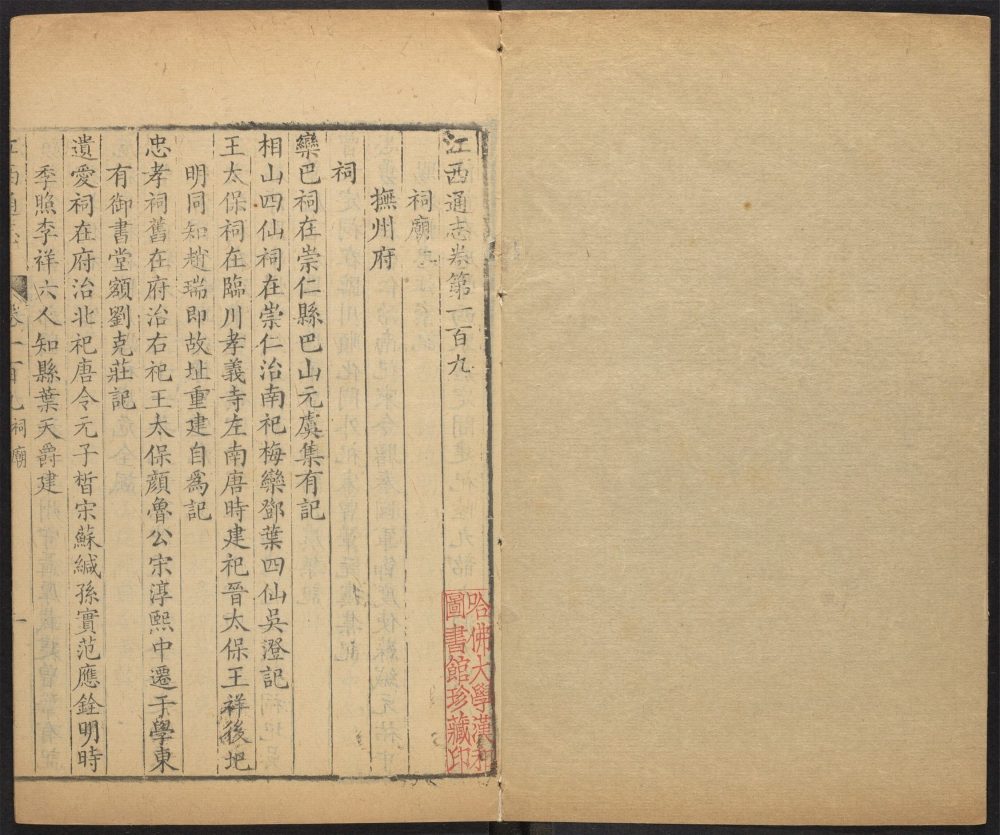 江西通志卷第一百九
祠廟
撫州府
祠
欒巴祠在崇仁縣巴山元虞集有記
相山四仙祠在崇仁治南祀梅欒鄧葉四仙吳澄記
王太保祠在臨川孝義寺左南唐時建祀晉太保王祥後圯
明同知趙瑞即故址重建自爲記
忠孝祠舊在府治右祀王太保顔魯公宋淳熙中遷于學東
有御書堂額劉克莊記
遺愛祠在府治北祀唐令元子晳宋蘇緘孫實范應銓明時
季照李祥六人知縣葉天爵建
江西通志
卷一百九
祠廟
一
哈佛大學漢和
圖書館珍藏印